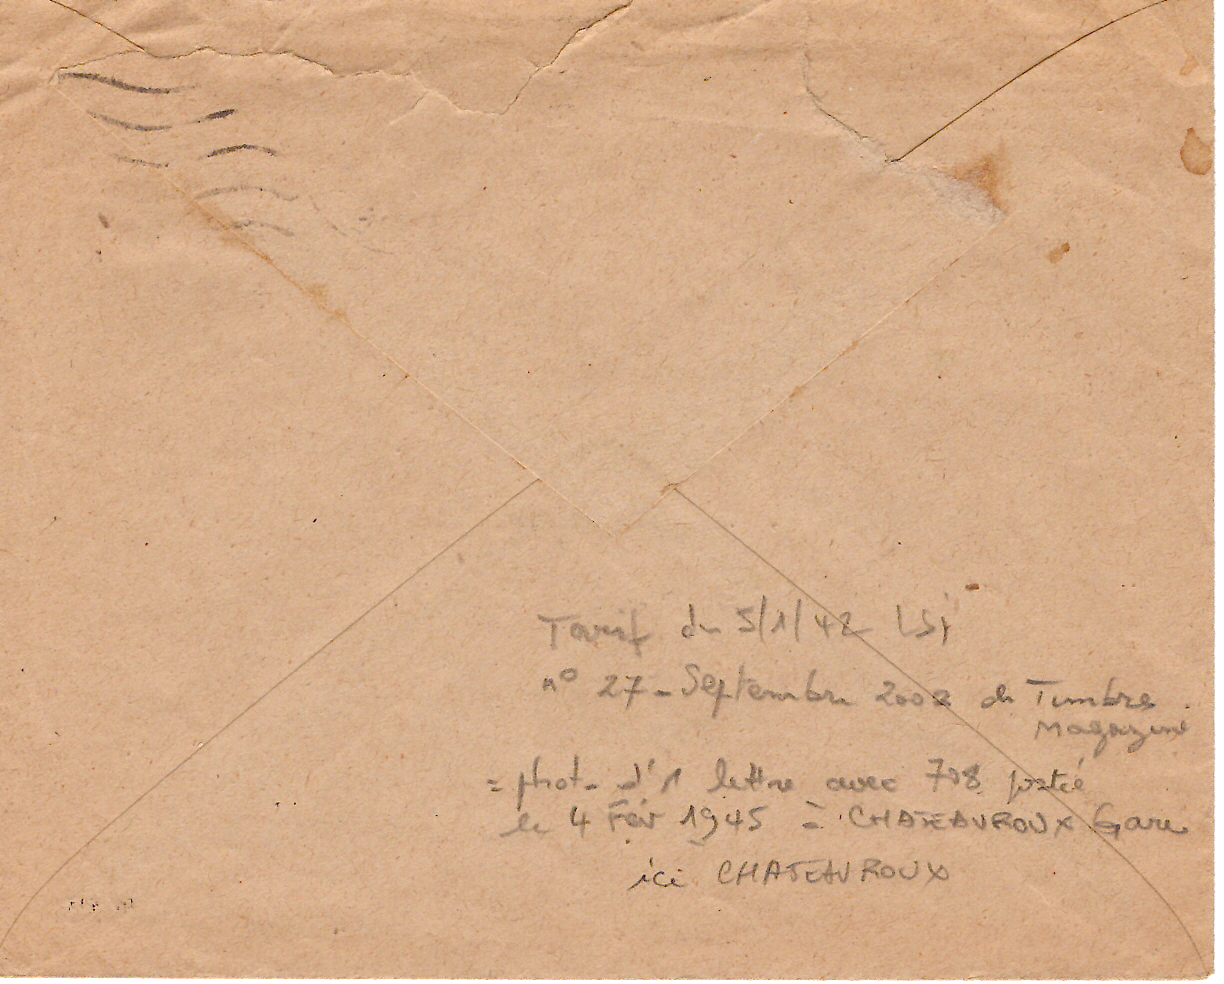 Tarif du 5/1/42 LSi
n° 27 - Septembre 2002 de Timbres
Magazine
= photo d'1 lettre avec 708 postée
le 4 Fév 1945 à CHATEAUROUX Gare
ici CHATEAUROUX